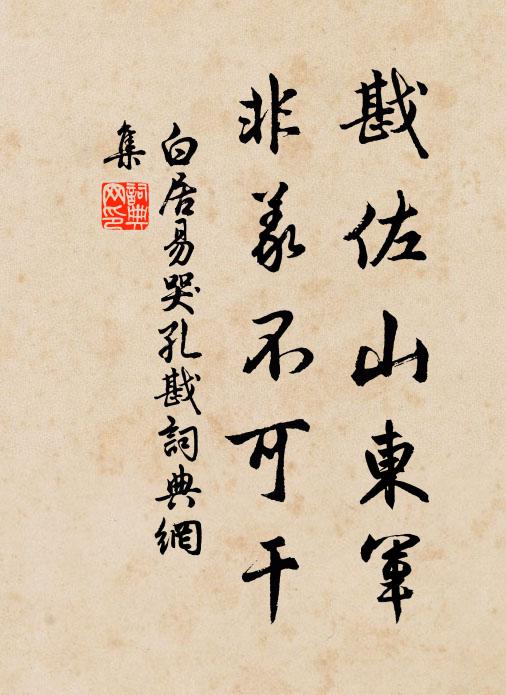 戡佐山東軍
非義不可干
白居易哭孔戡詞典網
集
詞典網印